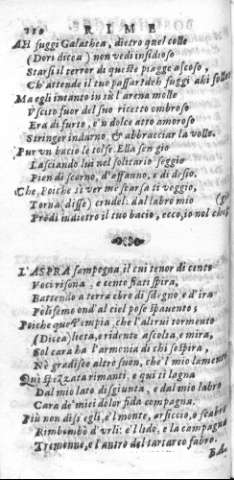 110 RIME
AH fuggi Galathea, dietro quel colle
(Dori dicea) non vedi insidioso
Starsi il terror di queste piagge ascoso,
Ch'attende il tuo passar? deh fuggi ahi folle
Ma egli intanto in sù l'arena molle
Vscito fuor del suo ricetto ombroso
Era di furto, e'n dolce atto amoroso
Stringer indurno & abbracciar la volle.
Pur vn bacio le tolse. Ella sen gio
Lasciando lui nel solitario seggio
Pien di scorno, d'affanno, e di desio.
Che, Poiche si ver me scarsa ti veggio,
Torna (disse) crudel. dal labro mio
Prédi indietro il tuo bacio, ecco, io nol
L'ASPRA sampogna il cui tenor di cento
Voci risona, e cento fiati spira,
Battendo a terra ebro di sdegno, e d'ira
Polifemo ond'al ciel pose spauento;
Poiche quest'empia, che l'altrui tormento
(Dicea) lieta, e ridente ascolta, e mira,
Sol cara ha l'armonia di chi sospira,
Ne gradisce altro suon, che'l mio lamento
Qui spezzata rimanti, e qui ti lagna
Dal mio lato disgiunta, e dal mio labro
Cara de' miei dolor fida compagna.
Più non disse egli, e'l monte, arsiccio, e scabro
Rimbombò d'vrli: e'l lido, e la campagna
Tremonne, e l'antro del tartareo fabro.